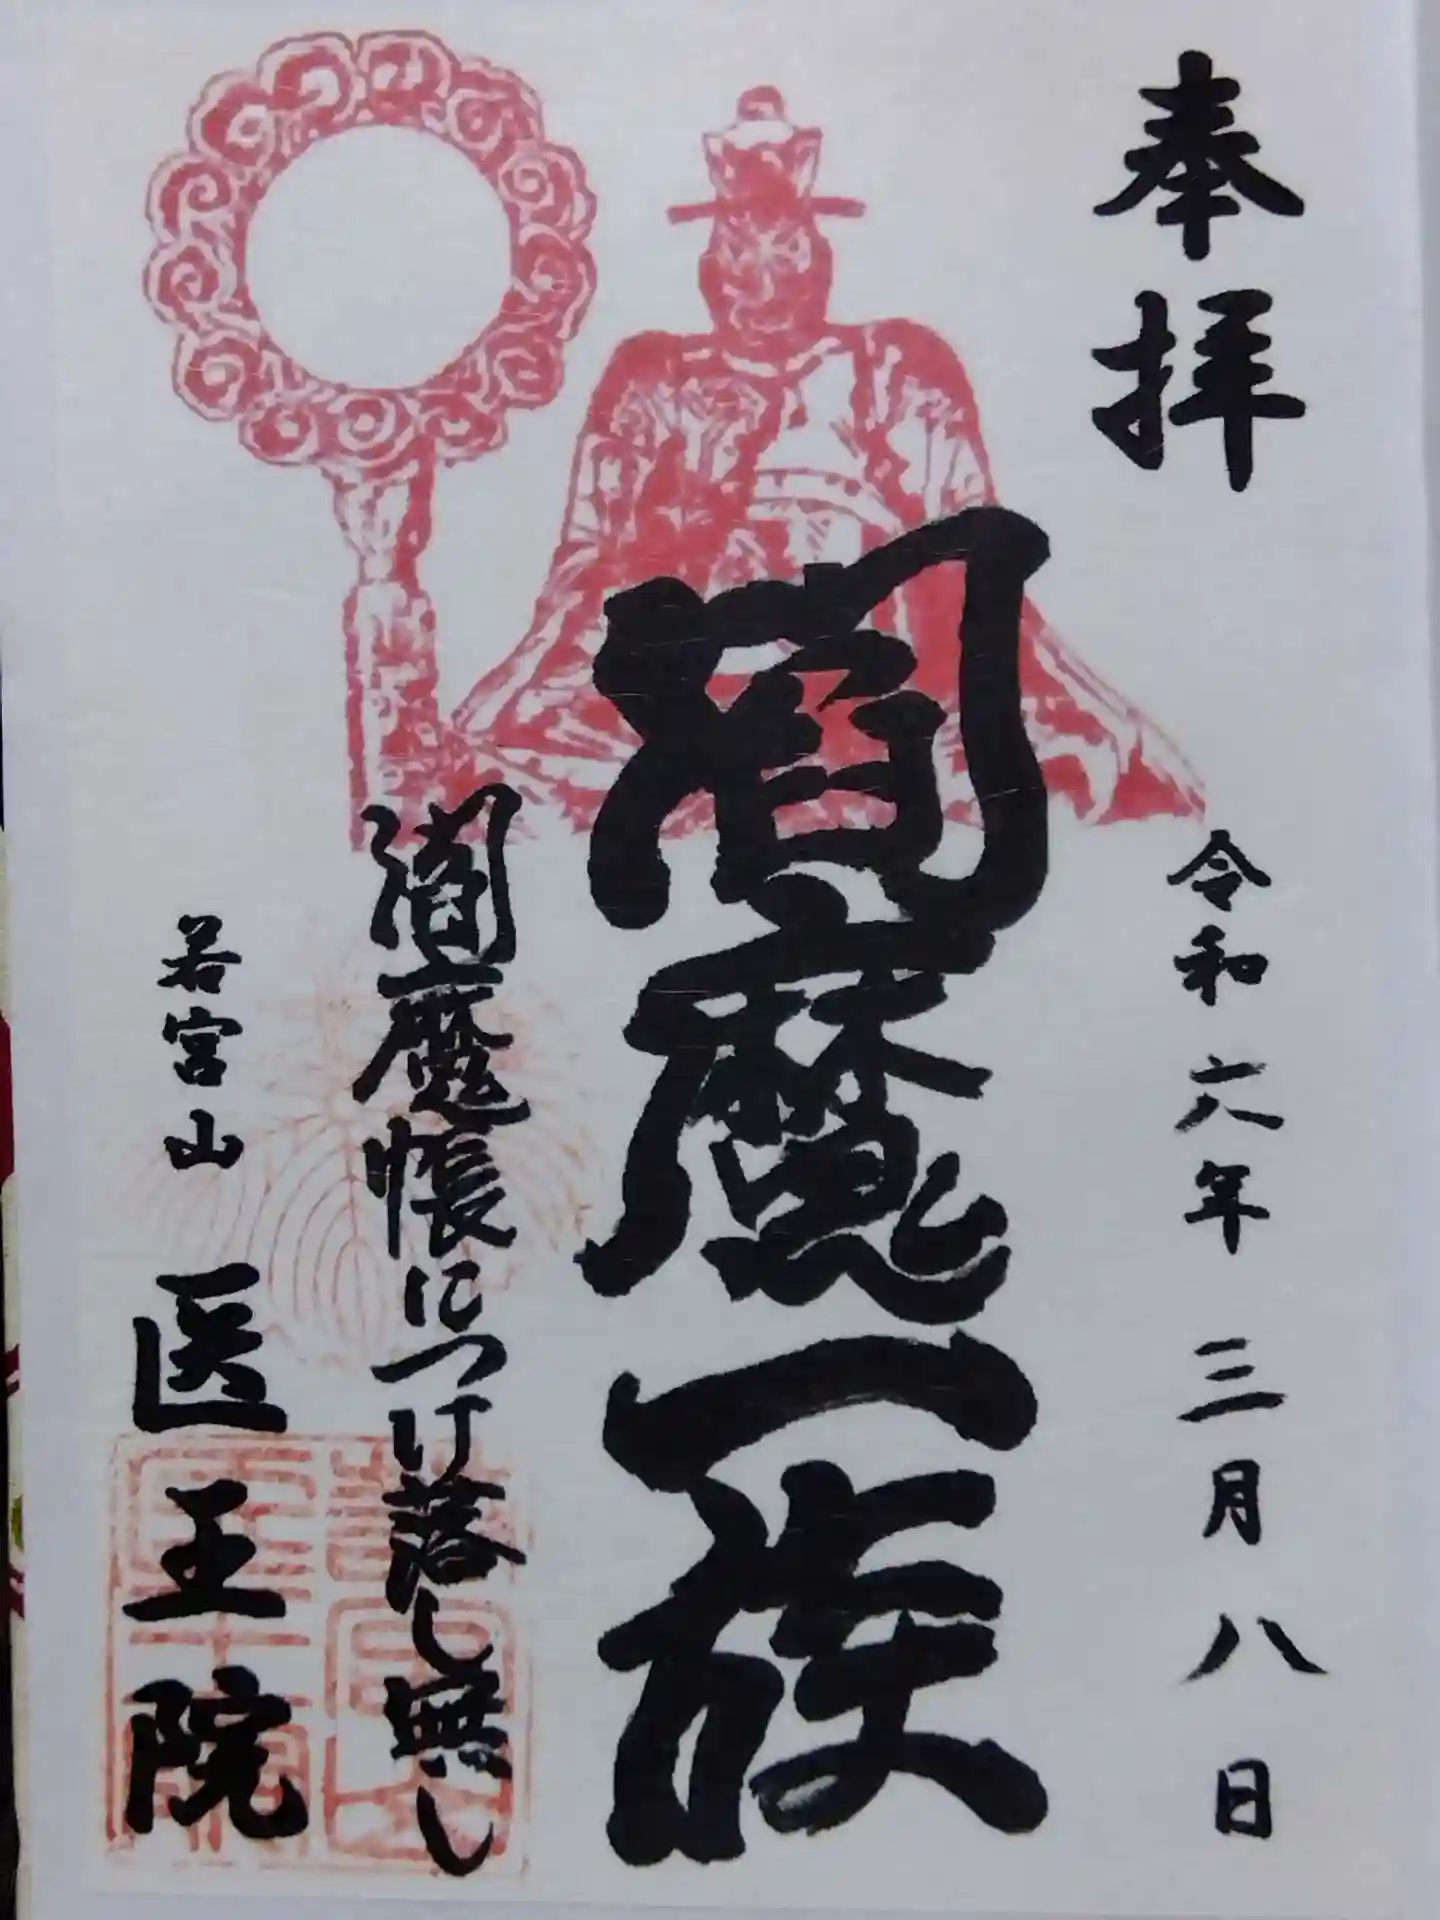 奉拝
令和六年三月八日
閻魔一族
閻魔帳につけ落し無し
若宮山
医王院